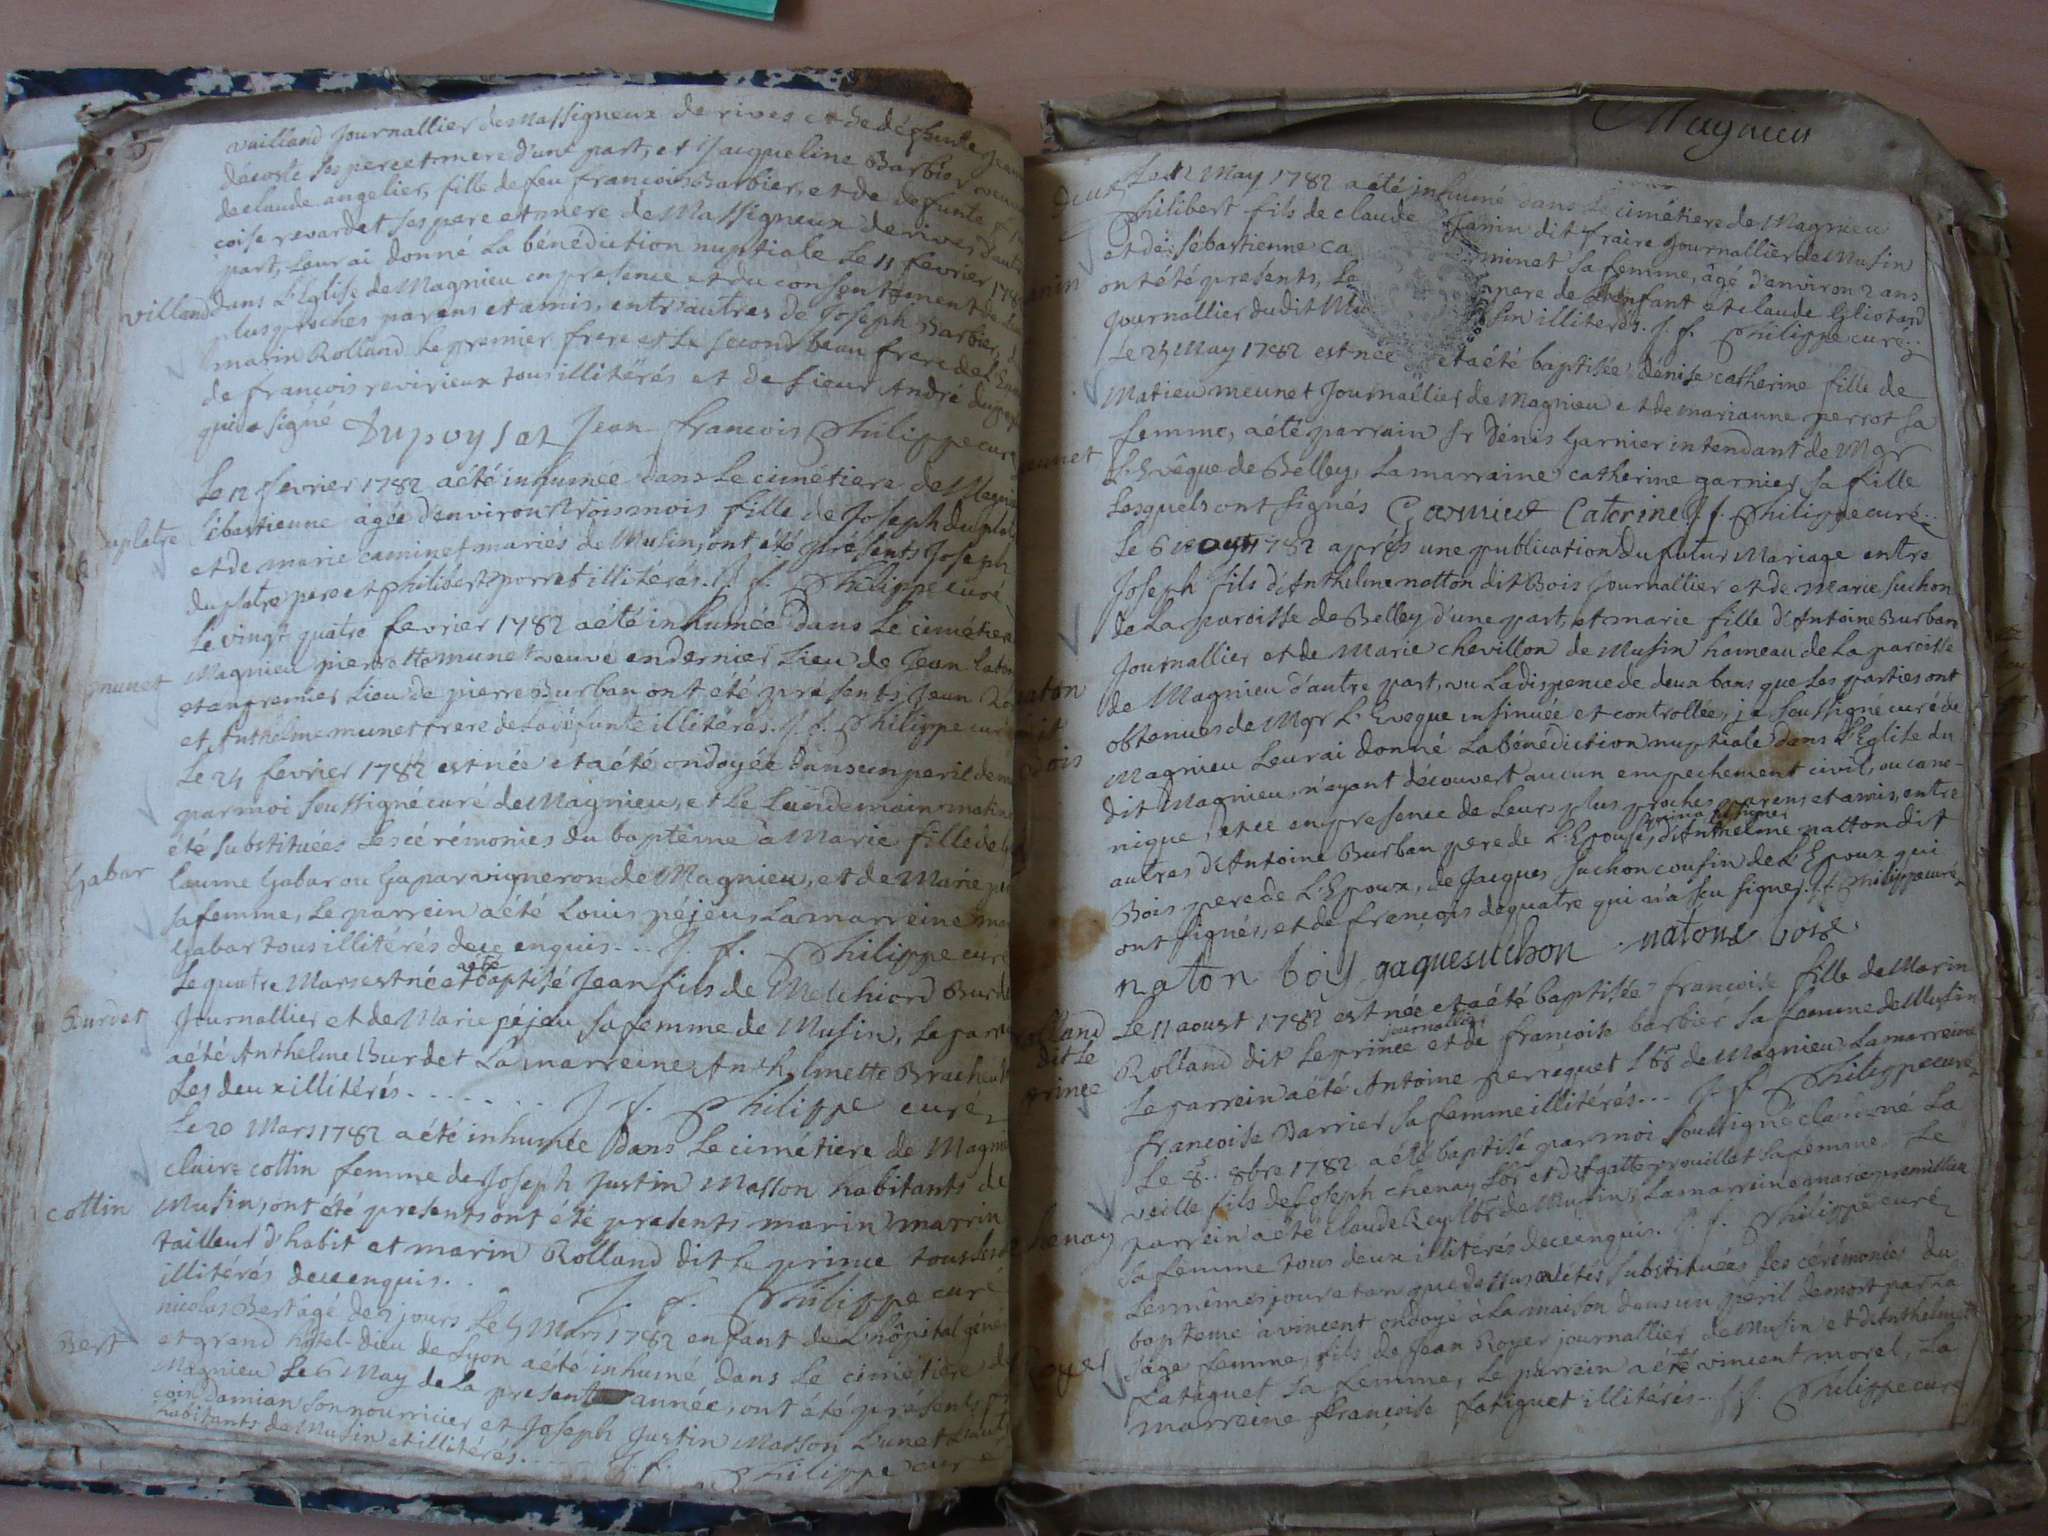 vailland Journallier de Massigneux de rives et de défunte
décoste ses pere et mere d'une part, et Jacqueline Barbier veuve
de claude angelier, fille de feu francois Barbier, et de defunte
coise revardet ses pere et mere de Massigneux de rives, d'autre
part, leur ai donné La bénédiction nuptiale Le 11 fevrier 178
villand dans L'Eglise de Magnieu en presence et du consentement de
plus proches parens et amis, entr'autres de Joseph Barbier,
marin Rolland le premier frere et le second beau frere de
de françois revirieux tous illitérés et de sieur André
qui a signé Dupuysat Jean francois Philippe curé
Le 12 fevrier 1782 a été inhumée dans Le cimétiere de
platre Sébastienne âgée d'environ trois mois fille de Joseph
et de marie caminet mariés de Musin, ont été présents Joseph
duplatre pere et philibert porret illitérés. J. f. Philippe curé
Le vingt quatre fevrier 1782 a été inhumée dans Le cimétiere
munet Magnieu pierrotte munet veuve en dernier Lieu de Jean
et en premier Lieu de pierre Burban ont été présents Jean
et Anthelme munet frere de La défunte illitérés. J. f. Philippe curé
Le 24 fevrier 1782 est née et a été ondoyée dans un peril de
par moi soussigné curé de Magnieu, et Le Lendemain matin
été substituées Les cérémonies du baptême à Marie fille de
Gabar laume Gabar ou Gapar vigneron de Magnieu, et de Marie
sa femme, Le parrein a été Louis péjeu, La marreine
Gabar tous illitérés de ce enquis... J. f. Philippe curé
Le quatre Mars est né et a été baptisé Jean fils de Melchiord
Burdet Journallier et de Marie péjeu sa femme de Musin, Le
a été Anthelme Burdet La marreine Anthelmette
Les deux illitérés....... J. f. Philippe curé
Le 20 Mars 1782 a été inhumée dans Le cimétiere de
claire cottin femme de Joseph Justin Masson habitants de
cottin Musin, ont été presents ont été presents marin marrin
tailleur d'habit et marin Rolland dit le prince tous
illitérés de ce enquis.. J. f. Philippe curé
nicolas Bert âgé de 2 jours Le 4 Mars 1782 enfant de L'hôpital
Bert et grand hotel-dieu de Lyon a été inhumé dans Le cimétiere de
Magnieu Le 6 May de La presente année, ont été présents
cois Damian son nourricier et Joseph Justin Masson L'un et L'autre
habitants de Musin et illitérés.... J. f. Philippe curé
Magnieu
Le 12 May 1782 a été inhumé dans Le cimétiere de Magnieu
Philibert fils de claude Janin dit fraire Journallier de Musin
et de sébastienne ca minet sa femme, âgé d'environ 2 ans
ont été presents, Le pere de L'enfant et claude
Journallier du dit Mu sin illiterés. J. f. Philippe curé
Le 25 May 1782 est née et a été baptisée dénise catherine fille de
Matieu meunet Journallier de Magnieu et de marianne perrot sa
femme, a été parrain Sr Dénis Garnier intendant de Mgr
L'Evêque de Belley, La marraine catherine garnier sa fille
Lesquels ont signés Garnier Caterine J. f. Philippe curé
Le 6 1782 après une publication du futur Mariage entre
Joseph fils d'Anthelme natton dit Bois Journallier et de Marie suchon
de La paroisse de Belley d'une part, et marie fille d'Antoine Burban
Journallier et de Marie chevillon de Musin hameau de La paroisse
de Magnieu d'autre part, vu La dispence de deux bans que Les parties ont
naton dit Bois
obtenues de Mgr L'Eveque insinuée et controllée, je soussigné curé de
Magnieu Leur ai donné La bénédiction nuptiale dans L'Eglise du
dit Magnieu, n'ayant découvert aucun empechement civil, ou cano-
nique, et ce en presence de Leurs plus proches parens et amis, entre
autres d'Antoine Burban pere de L'Epouse, d'Anthelme natton dit
Bois pere de L'Epoux, de Jacques suchon cousin de L'Epoux qui
ont signés, et de françois dequatre qui n'a seu signer. J. f. Philippe curé
naton bois gaque suchon natons bois
Le 11 aoust 1782 est née et a été baptisée françoise fille de Marin
rolland dit Le prince
Rolland dit Le prince journallier et de françoise barbier sa femme de Musin
Le parrein a été Antoine perrequet de Magnieu La marreine
francoise Barrier sa femme illitérés... J. f. Philippe curé
Le 8.. 8bre 1782 a été baptisé par moi soussigné claude né La
veille fils de Joseph chenay et d'agatte prouillet sa femme, Le
chenay parrein a été claude Rey de Musin, La marreine marie
sa femme tous deux illitérés de ce enquis. J. f. Philippe curé
Les mêmes jour et an que dessus ont étés substituées Les cérémonies du
bapteme à vincent ondoyé à La maison dans un péril de mort par La
royer sage femme, fils de Jean Royer journallier de Musin et d'Anthelmette
fatiguet sa femme, Le parrein a été vincent morel, La
marreine françoise fatiguet illitérés... J. f. Philippe curé